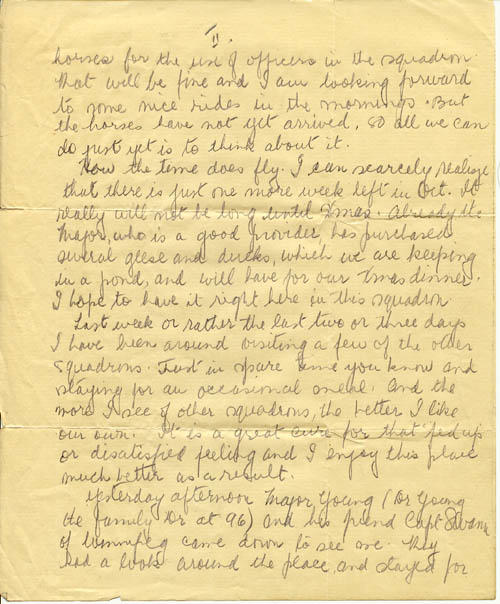 II.
horses for the use of officers in the squadron.
That will be fine and I am looking forward
to some nice rides in the mornings. But
the horses have not yet arrived, so all we can
do just yet is to think about it.
How the time does fly. I can scarcely realize
that there is just one more week left in Oct. It
really will not be long until Xmas. Already the
Major, who is a good provider, has purchased
several geese and ducks, which we are keeping
in a pond, and will have for our Xmas dinner.
I hope to have it right here in this squadron.
Last week or rather the last two or three days
I have been around visiting a few of the other
squadrons. Just in spare time you know and
staying for an occasional meal. And the
more I see of other squadrons, the better I like
our own. It is a great cure for that fed up
or disatisfied feeling and I enjoy this place
much better as a result.
Yesterday afternoon Major Young (Dr Young
the family Dr at 96) and his friend Capt
of Winnipeg came down to see me. They
had a look around the place, and stayed for